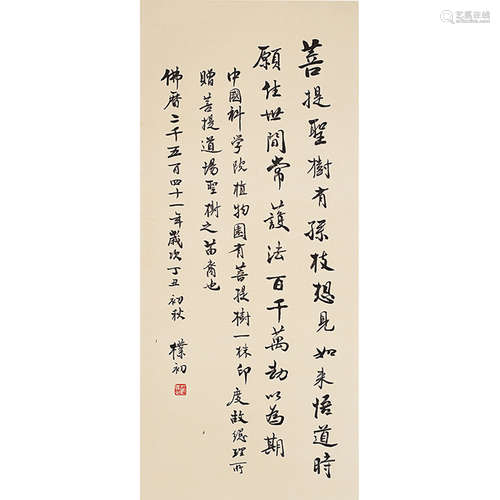 菩提聖樹有孫枝想見如来悟道時
願住世間常護法百千萬劫以為期
中國科学院植物園有菩提樹一株印度故總理所
贈菩提道場聖樹之苗裔也
佛曆二千五百四十一年歲次丁丑初秋 樸初